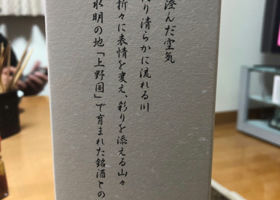 澄んだ空気
たり清らかに流れる川
折々に表情を変え、彩りを添える山々
水明の地「上野国」で育まれた銘酒との